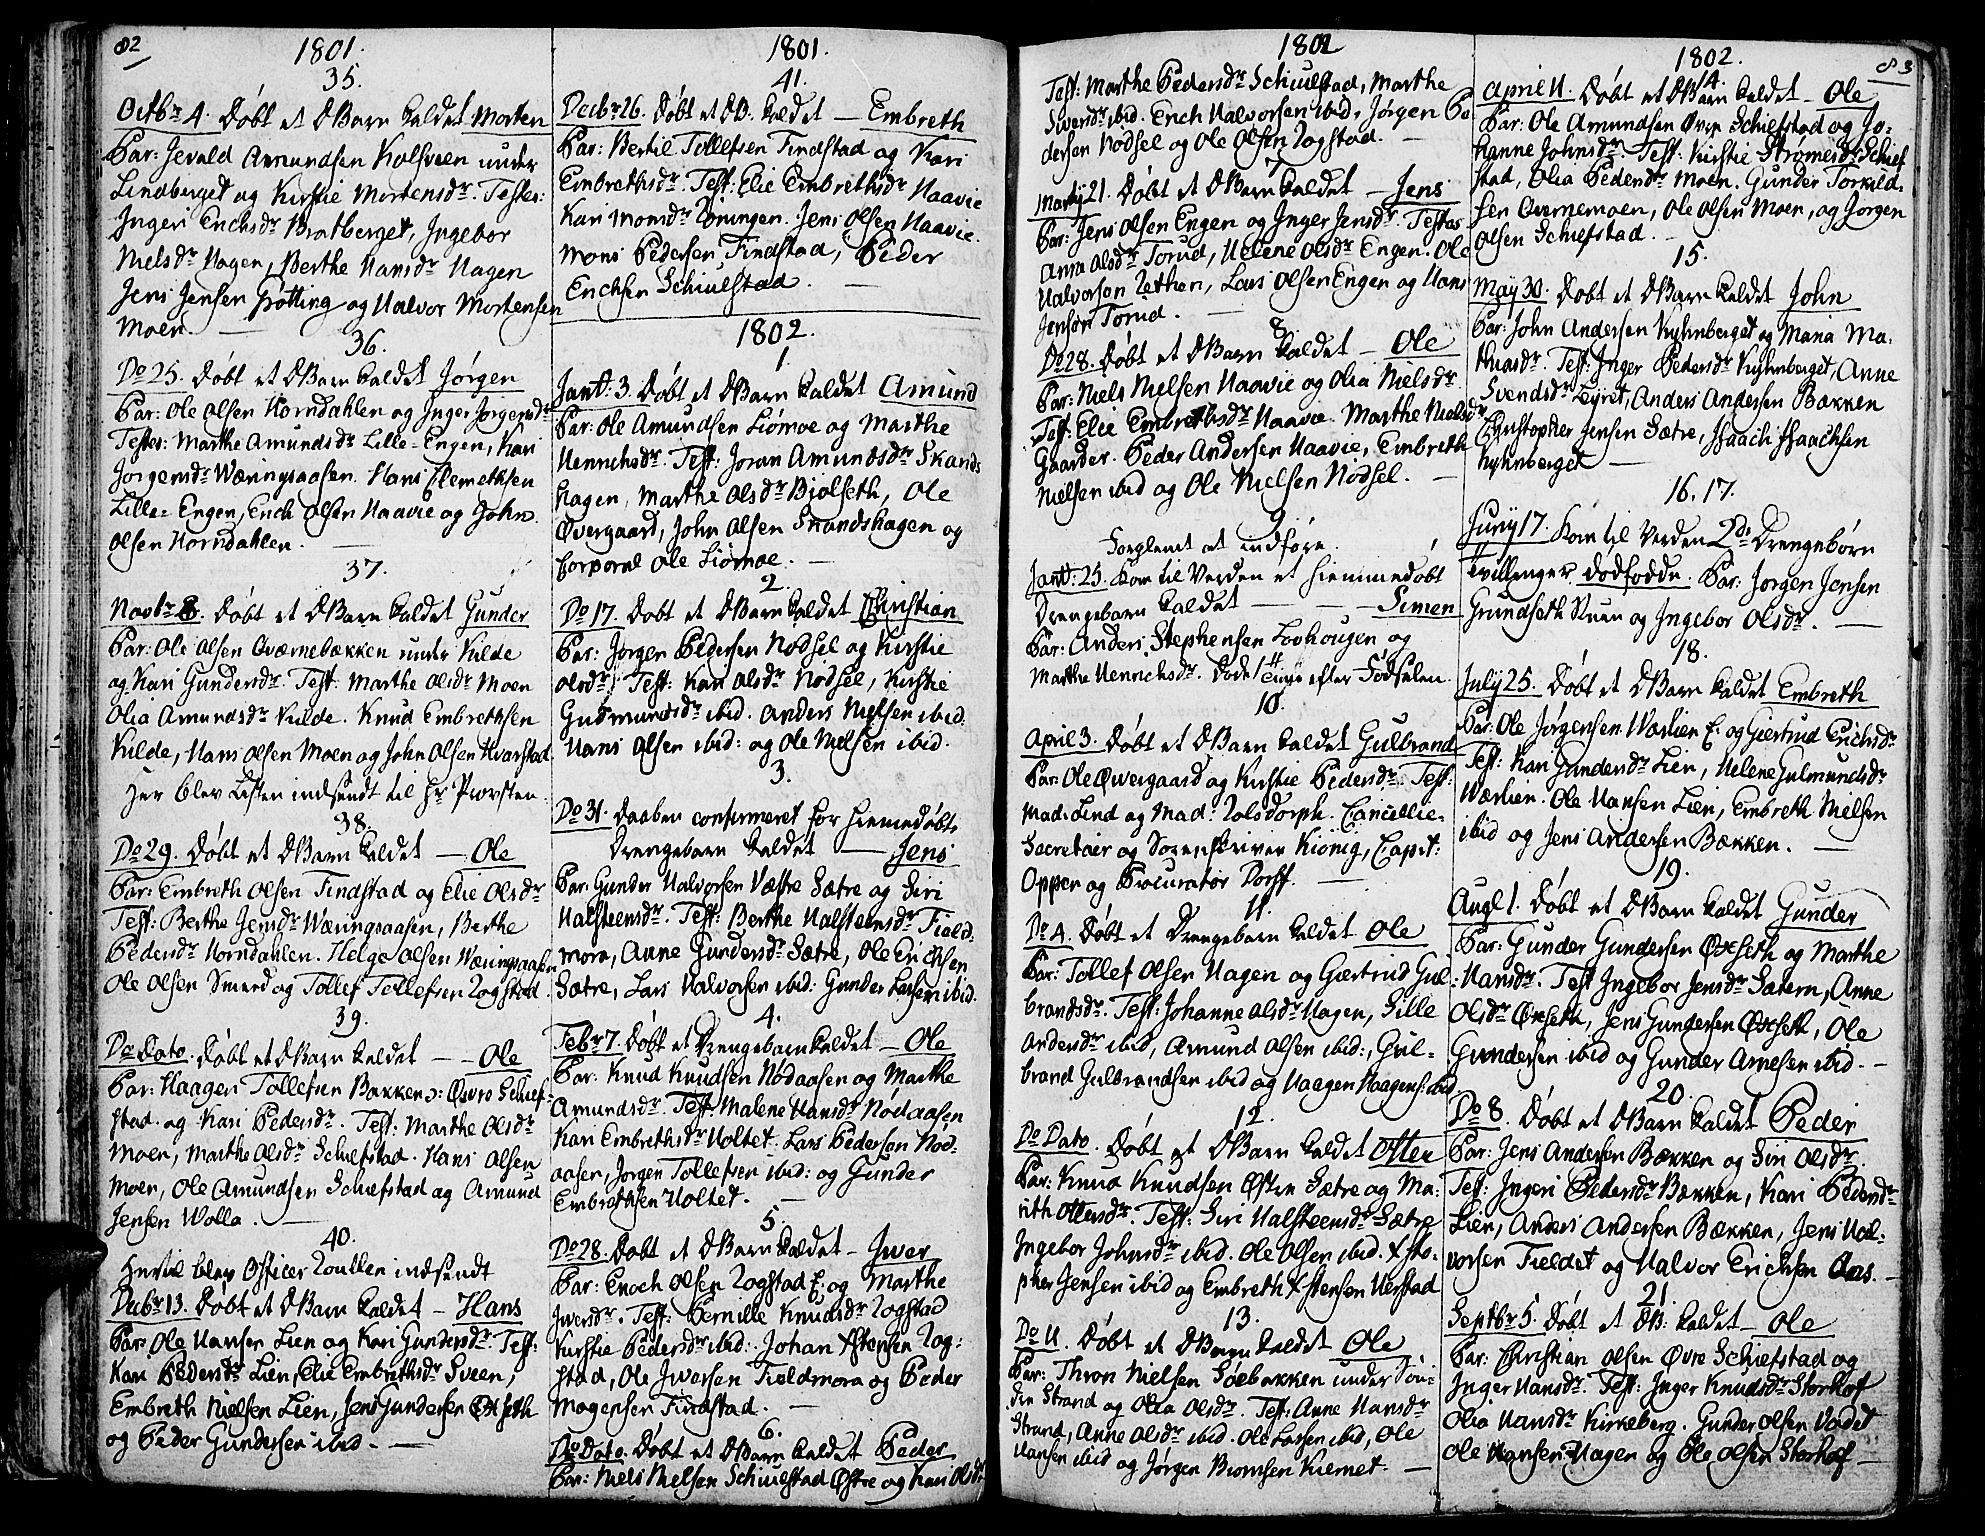 82
1801.
35.
Octbr 4. Døbt et DBarn kaldet Morten
Par: Jevald Amundsen Kolsveen under
Lindberget og Kirstie Mortensdr. Testes:
Ingeri Erichsdr Bratberget, Ingebor
Nielsdr Hagen, Berthe Hansdr Hagen
Jens Jensen Grøtting og Halvor Mortensen
Moen.
36.
Do 25. Døbt et DBarn kaldet Jørgen
Par: Ole Olsen Horndahlen og Inger Jørgensdr
Testes: Marthe Amundsdr Lille-Engen, Kari
Jørgensdr Wæringsaasen. Hans Clemethsen
Lille-Engen, Erich Olsen Haavie og John
Olsen Horndahlen.
37.
Novbr 8. Døbt et DBarn kaldet Gunder
Par: Ole Olsen Qværnebækken under Kilde
og Kari Gundersdr. Test: Marthe Olsdr Moen
Olia Amundsdr Kilde. Knud Embrethsen
Kilde, Hans Olsen Moen og John Olsen Hvarstad
Her blev Listen indsendt til Hr Provsten.
38.
Do 29. Døbt et DBarn kaldet — Ole
Par: Embreth Olsen Findstad og Elie Olsdr
Test: Berthe Jensdr Wæringsaasen, Berthe
Pedersdr Horndahlen. Helge Olsen Wæringsaasen
Ole Olsen Smed og Tollef Tollefsen Zogstad.
39.
Do Dato. Døbt et DBarn kaldet — Ole
Par: Haagen Tollefsen Bækken o: Øvre Schief-
stad og Kari Pedersdr. Test: Marthe Olsdr
Moen, Marthe Olsdr Schiefstad. Hans Olsen
Moen, Ole Amundsen Schiefstad og Amund
Jensen Wolla.
40.
Hertil blev Officer Roullen indsendt
Decbr 13. Døbt et DBarn kaldet — Hans
Par: Ole Hansen Lien og Kari Gundersdr. Test:
Kari Pedersdr Lien, Elie Embrethsdr Sveen,
Embreth Nielsen Lien, Jens Gundersen Øxseth
og Peder Gundersen ibid. —
1801.
41.
Decbr 26. Døbt et DB. kaldet — Embreth
Par: Bertil Tollefsen Findstad og Kari
Embrethsdr. Test: Elie Embrethsdr Haavie
Kari Monsdr Loningen. Jens Olsen Haavie.
Mons Pedersen Findstad, Peder
Erichsen Schiulstad. —
1802.
1.
Janr: 3. Døbt et DBarn kaldet Amund
Par: Ole Amundsen Liømoe og Marthe
Henrichsdr. Test: Joran Amundsdr Skands
hagen, Marthe Olsdr Bjølseth, Ole
Øvergaard, John Olsen Skandshagen og
Corporal Ole Liømoe. —
2.
Do 17. Døbt et DBarn kaldet Christian
Par: Jørgen Pedersen Nødsel og Kirstie
Olsdr. Test: Kari Olsdr Nødsel, Kirstie
Gudmundsdr ibid. Anders Nielsen ibid.
Hans Olsen ibid: og Ole Nielsen ibid.
3.
Do 31. Daaben confirmeret for hiemmedøbt
Drengebarn kaldet — Jens
Par: Gunder Halvorsen Vestre Sætre og Siri
Halsteensdr. Test: Berthe Halsteensdr Field-
mora, Anne Gundersdr Sætre, Ole Erichsen
Sætre, Lars Halvorsen ibid: Gunder Larsen ibid.
4.
Febr 7. Døbt et Drengebarn kaldet — Ole
Par: Knud Knudsen Nødaasen og Marthe
Amundsdr. Test: Malene Hansdr Nødaasen
Kari Embrethsdr Holtet. Lars Pedersen Nød-
aasen, Jørgen Tollefsen ibid: og Gunder
Embrethsen Holtet. —
5.
Do 28. Døbt et DBarn kaldet — Iver
Par: Enoch Olsen Zogstad E. og Marthe
Iversdr. Test: Pernille Knudsdr Zogstad
Kirstie Pedersdr ibid: Johan Xstensen Zog-
stad, Ole Iversen Fieldmora og Peder
Mogensen Findstad. —
6.
Do Dato. Døbt et DBarn kaldet Peder
Par: Niels Nielsen Schiulstad Østre og Kari Olsdr
1802
Test: Marthe Pedersdr Schiulstad, Marthe
Siversdr ibid. Erich Halvorsen ibid. Jørgen Pe
dersen Nødsel og Ole Olsen Zogstad. —
7
Martij 21. Døbt et DBarn kaldet — Jens
Par: Jens Olsen Engen og Inger Jensdr. Testes
Anna Olsdr Torud, Helene Olsdr Engen. Ole
Halvorsen Zethen, Lars Olsen Engen og Hans
Jensen Torud. —
8.
Do 28. Døbt et DBarn kaldet — Ole
Par: Niels Nielsen Haavie og Olia Nielsdr.
Test: Elie Embrethsdr Haavie. Marthe Nielsdr
Gaarder. Peder Andersen Haavie, Embreth
Nielsen ibid og Ole Nielsen Nødsel. —
9
Forglemt at indføre.
Janr: 25. Kom til Verden et hiemmedøbt
Drengebarn kaldet — Simen
Par: Anders Stephensen Lovhougen og
Marthe Henrichsdr. Døde 14 efter Fødselen.
10.
April 3. Døbt et DBarn kaldet Gulbrand
Par: Ole Øvergaard og Kirstie Pedersdr. Test:
Mad. Lind og Mad: Rolsdorph. Cancellie-
Secretair og Sorenskriver Kiønig, Capit:
Oppen og Procurator Dorff. —
11.
Do 4. Døbt et Drengebarn kaldet Ole
Par: Tollef Olsen Hagen og Giertrud Gul-
brandsdr. Test: Johanne Olsdr Hagen, Sille
Andersdr ibid, Amund Olsen ibid:, Gul-
brand Gulbrandsen ibid og Haagen Haagens: ibid
12.
Do Dato. Døbt et DBarn kaldet Often
Par: Knud Knudsen Østre Sætre og Ma-
rith Ottersdr. Test: Siri Halsteensdr Sætre
Ingebor Johnsdr ibid. Ole Olsen ibid. Xsto-
pher Jensen ibid og Embreth Xstensen Herstad
13.
Do 11. Døbt et DBarn kaldet Ole
Par: Thron Nielsen Søebakken under Søn-
dre Strand og Olia Olsdr. Test: Anne Hansdr
Strand, Anne Olsdr ibid. Ole Larsen ibid, Ole
Hansen ibid og Jørgen Biørnsen Kiernet. —
1802.
83
14.
April 11. Døbt et DBarn kaldet — Ole
Par: Ole Amundsen Øvre Schiefstad og Jo-
hanne Johnsdr. Test: Kirstie Strømesdr Schief
stad, Olia Pedersdr Moen. Gunder Torkild-
sen Qvernemoen, Ole Olsen Moen, og Jørgen
Olsen Schiefstad. —
15.
May 30. Døbt et DBarn kaldet John
Par: John Andersen Kyhnberget og Maria Ma-
thiasdr. Test: Inger Pedersdr Kyhnberget, Anne
Svendsdr Eyret, Anders Andersen Bækken
Christopher Jensen Sætre, Isaach Isaachsen
Kyhnberget —
16. 17.
Junij 17. Kom til Verden 2de Drengebørn
Tvillinger dødfødde. Par: Jørgen Jensen
Grundseth Stuen og Ingebor Olsdr. —
18.
July 25. Døbt et DBarn kaldet Embreth
Par: Ole Jørgensen Wærlien E. og Giertrud Erichsdr
Test: Kari Gundersdr Lien, Helene Gulmundsdr
Wærlien. Ole Hansen Lien, Embreth Nielsen
ibid og Jens Andersen Bækken. —
19.
Augl 1. Døbt et DBarn kaldet Gunder
Par: Gunder Gundersen Øxseth og Marthe
Hansdr. Test Ingebor Jensdr Sætern, Anne
Olsdr Øxseth, Jens Gundersen Øxseth, Ole
Gundersen ibid og Gunder Arnesen ibid. —
20.
Do 8. Døbt et DBarn kaldet Peder
Par: Jens Andersen Bækken og Siri Olsdr.
Test: Ingeri Pedersdr Bækken, Kari Pedersdr
Lien, Anders Andersen Bækken, Jens Hal-
vorsen Fieldet og Halvor Erichsen Aas. —
21.
Septbr 5. Døbt et DB: kaldet — Ole
Par: Christian Olsen Øvre Schiefstad og
Inger Hansdr. Test: Inger Knudsdr Storhof
Olia Hansdr Kirkeberg. Gunder Olsen Vadet
Ole Hansen Hagen og Ole Olsen Storhof —